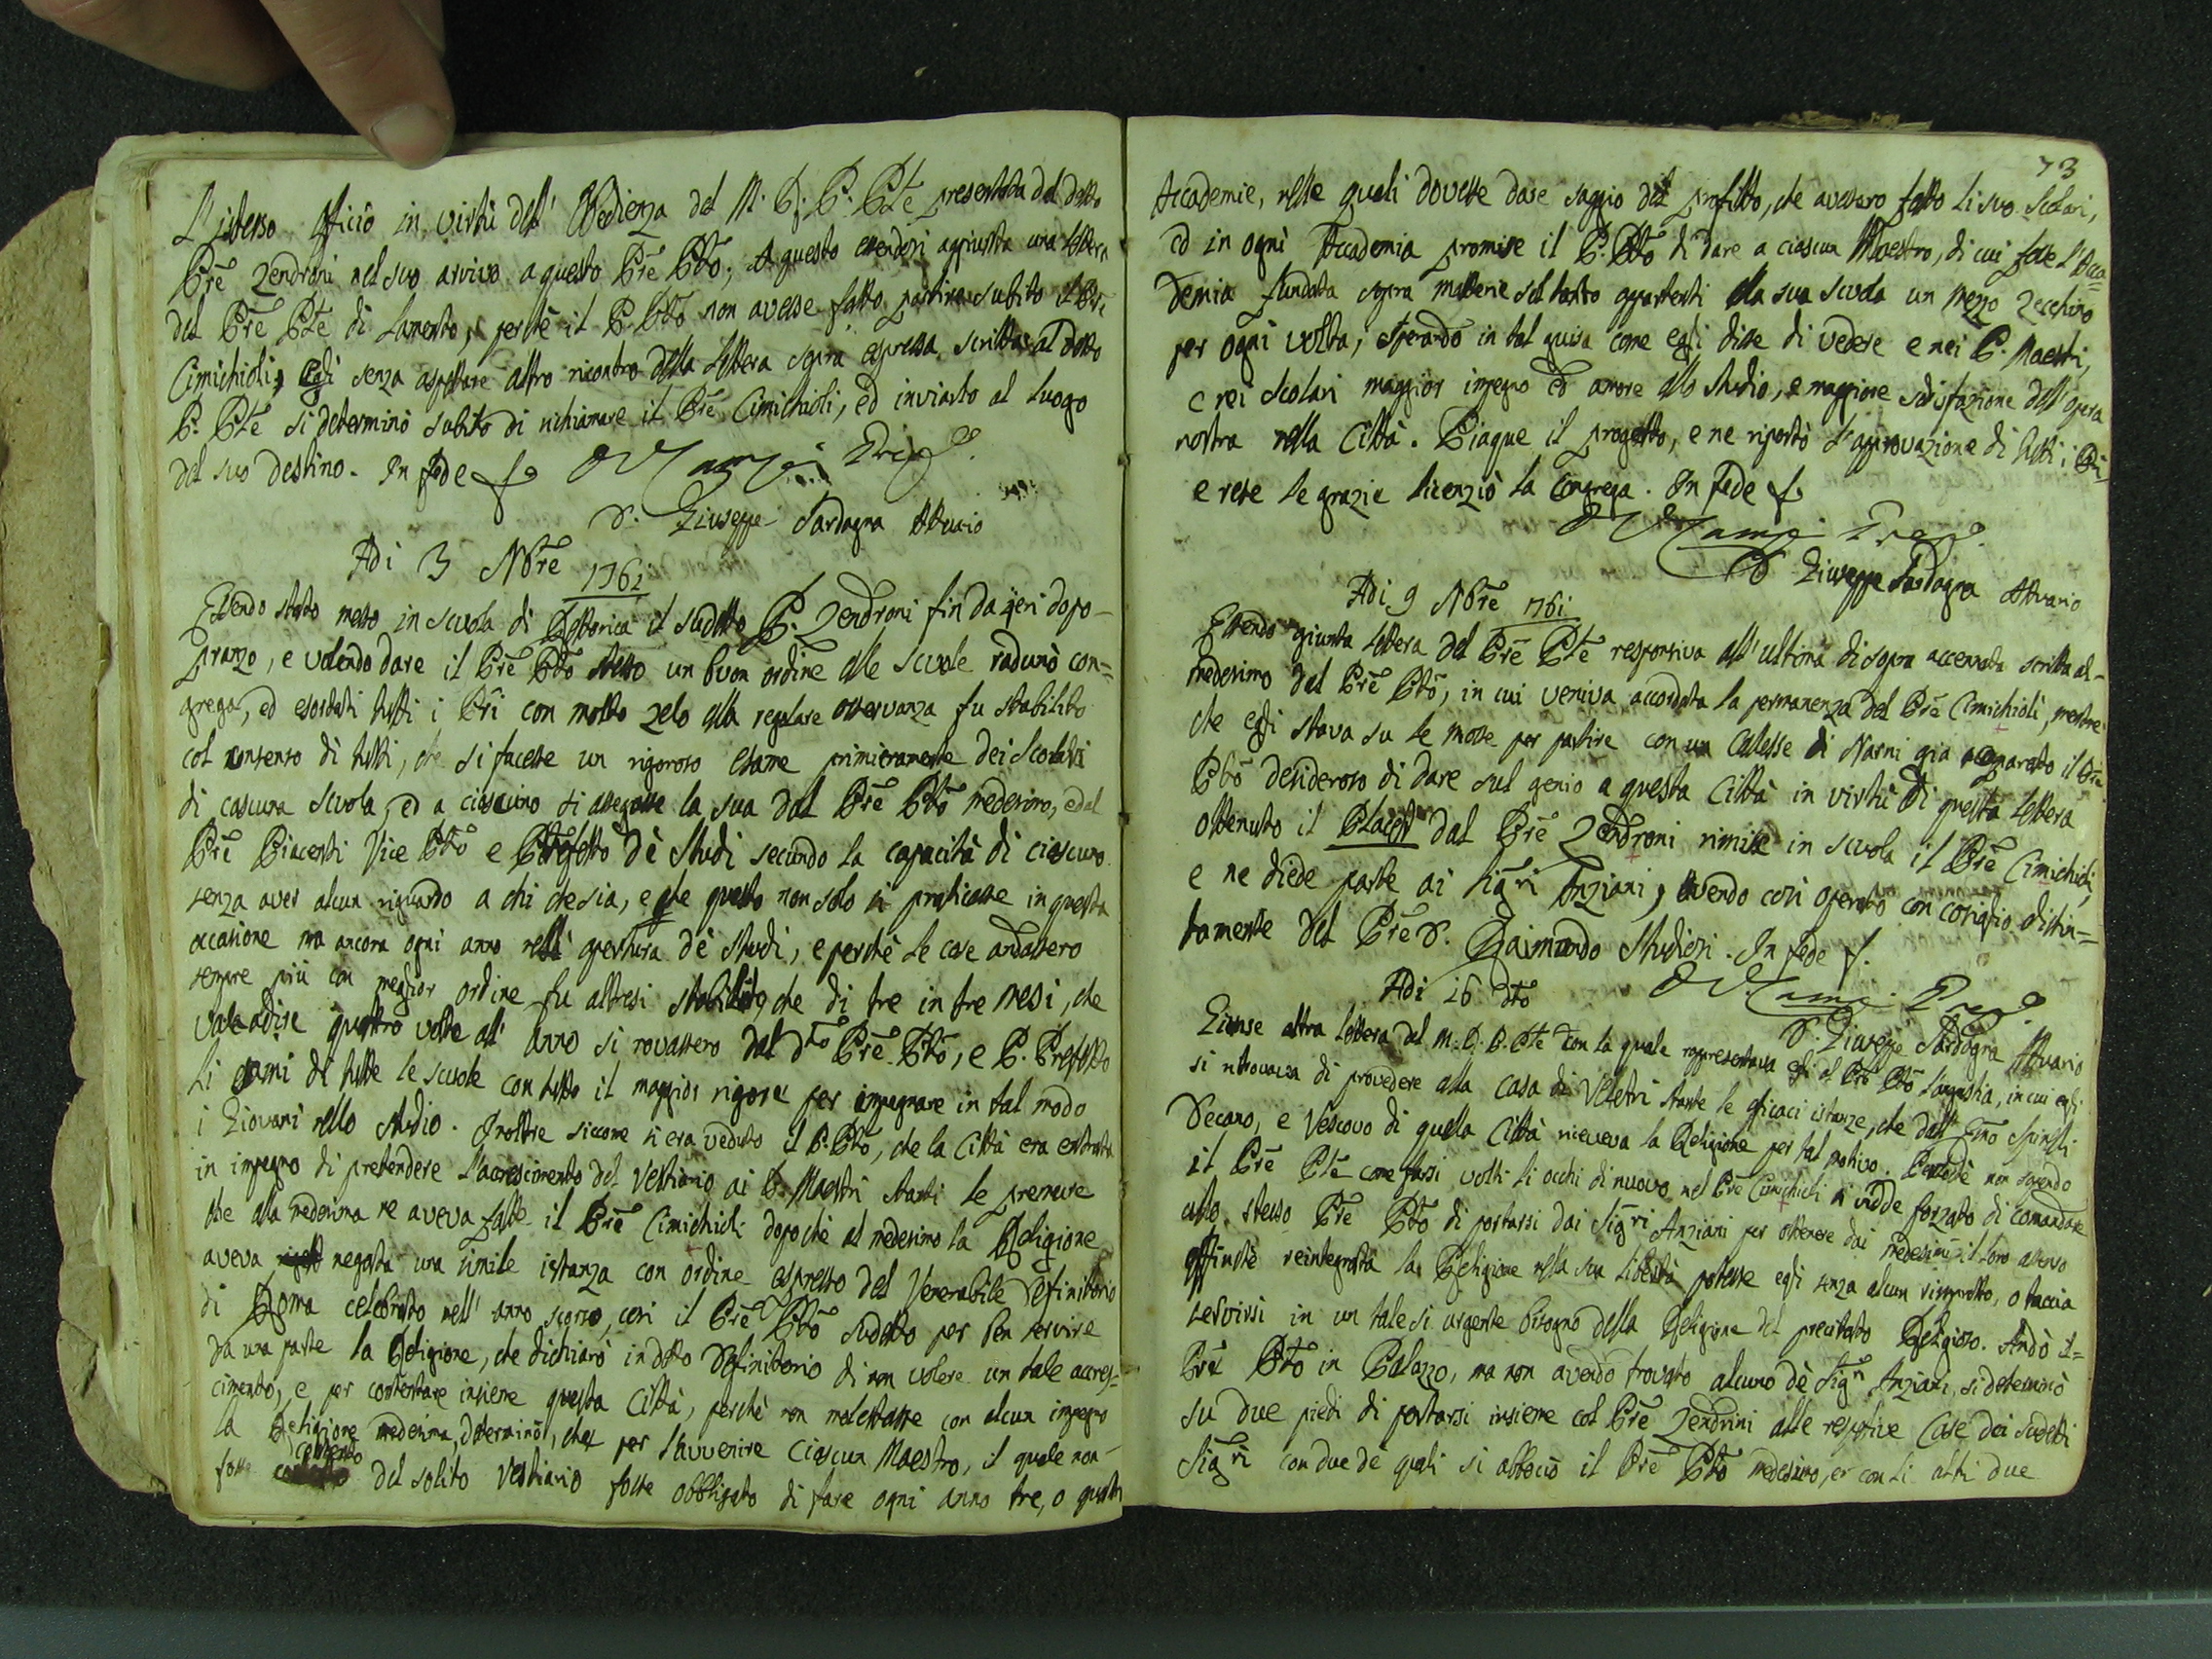 L'istesso officio in virtù dell' Obedienza del M. R. P. Pte presentata dal detto
Pre Zendroni nel suo arrivo a questo Pre Ptto; A questo essendosi aggiunta una lettera
del Pre Pte di lamento, perchè il P. Ptto non avesse fatto partire subito il Pre
Cimichioli, egli senza aspettare altro riscontro della lettera sopra espressa scritta al detto
P. Pte si determinò subito di richiamare il Pre Cimichioli, ed inviarlo al luogo
del suo destino. In fede
D. Giuseppe Sardagna Attuario
Adi 3 Nbre 1761
Essendo stato messo in scuola di Rettorica il sudetto P. Zendroni fin da jeri dopo-
pranzo, e volendo dare il Pre Ptto stesso un buon ordine alle scuole radunò con=
grega, ed esortati tutti i Pri con molto zelo alla regolare osservanza fu stabilito
col consenso di tutti, che si facesse un rigoroso esame primieramente dei Scolari
di cascuna scuola, ed a ciascuno si assegnasse la sua dal Pre Ptto medesimo, e dal
Pre Piacenti Vice Ptto e Prefetto dè Studi secundo la capacità di ciascuno
senza aver alcun riguardo a chi che sia, e che questo non solo si praticasse in questa
occasione ma ancora ogni anno nell' apertura dè Studi, e perchè le cose andassero
sempre più con meglior ordine fu altresi stabilito, che di tre in tre mesi, che
vale adire quattro volte all' anno si rovassero dal dtto Pre Ptto, e P. Prefetto
li esami di tutte le scuole con tutto il maggior rigore per impegnare in tal modo
i Giovani nello studio. Inoltre siccome si era veduto il P. Ptto, che la Città era entrata
in impegno di pretendere l'accrescimento del Vestiario ai P. Maestri stanti le premure
che alla medesima ne aveva fatte il Pre Cimichioli dopo chè al medesimo la Religione
aveva negata una simile istanza con ordine espresso del Venerabile Definitorio
di Roma celebrato nell' anno scorso, cosi il Pre Ptto sudetto per ben servire
da una parte la Religione, che dichiarò in detto Definitorio di non volere un tale accres=
cimento, e per contentare insieme questa Città, perchè non molestasse con alcun impegno
la Religione medesima, determinò, che per l'avvenire ciascun Maestro, il quale non-
fosse contento del solito Vestiario fosse obbligato di fare ogni anno tre, o quattro
73
Accademie, nelle quali dovesse dare saggio del profitto, che avessero fatto li suo Scolari,
ed in ogni Accademia promise il P. Ptto di dare a ciascun Maestro, di cui fosse l'Acca=
demia fundata sopra materie soltanto appartenti alla sua scuola un mezzo Zecchino
per ogni volta, sperando in tal guisa come egli disse di vedere e nei P. Maestri,
e nei Scolari maggior impegno ed amore allo studio, e maggiore sodisfazione dell'opera
nostra nella Città. Piaque il progetto, e ne riportò l'approvazione di tutti i Pri=
e rese le grazie licenziò la Congrega. In fede
D. Giuseppe Sardagna Attuario
Adi 9 Nbre 1761
Essendo giunta lettera del Pre Pte responsiva all'ultima di sopra accennata scritta al-
medesimo dal Pre Ptto, in cui veniva accordata la permanenza del Pre Cimichioli, mentre
che egli stava su le mosse per partire con un Calesse di Narni gia apparato il Pre
Ptto desideroso di dare sul genio a questa Città in virtù di questa lettera
ottenuto il Placet dal Pre Zendroni rimise in scuola il Pre Cimichioli,
e ne diede parte ai Sigri Anziani, avendo cosi operato con consiglio distin=
tamente del Pre D. Raimondo Studieri. In fede
Adi 16 dto
D. Giuseppe Sardagna Attuario
Giunse altra lettera del M. R. P. Pte con la quale rappresentava egli al Pre Ptto l'angustia, in cui egli
si ritrovava di provedere alla casa di Veletri stante le efficaci istanze, che dall' Emo Spinelli
Decano, e Vescovo di quella Città riceveva la Religione per tal motivo. Perlochè non sapendo
il Pre Pte come farsi volti li occhi di nuovo nel Pre Cimichioli si vidde forzato di comandare
allo stesso Pre Ptto di portarsi dai Sigri Anziani per ottenere dai medesimi il loro assenso
affinchè reintegrata la Religione nella sua libertà potesse egli senza alcun rimprotto, o taccia
servirsi in un tale si urgente bisogno della Religione del precitato Religioso. Andò il=
Pre Ptto in Palazzo, ma non avendo trovato alcuno dè Sigri Anziani, si determinò
su due piedi di portarsi insieme col Pre Zendrini alle respetive Case dei sudetti
Sigri con due de quali si abboccò il Pre Ptto medesimo, e con li altri due